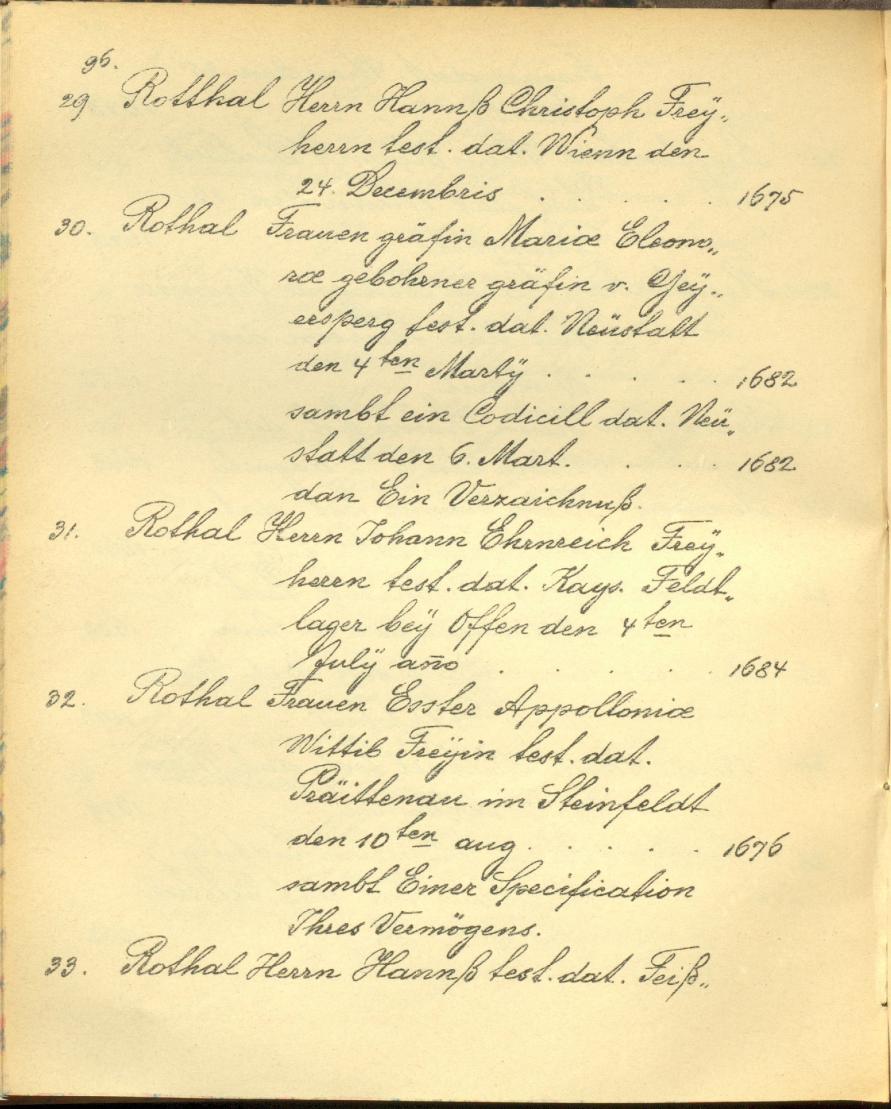 96.
29 Rotthal Herrn Hannß Christoph Frey„
herrn test. dat. Wienn den
24. Decembris . . . . . . 1675
30. Rothal Frauen gräfin Mariæ Eleono„
ræ gebohrner gräfin v. Geÿ„
ersperg test. dat. Neüstatt
den 4ten Martÿ . . . . 1682
sambt ein Codicill dat. Neü„
statt den 6. Mart. . . . . 1682
dan Ein Verzaichnuß.
31. Rothal Herrn Johann Ehrnreich Freÿ„
herrn test. dat. Kays. Feldt„
lager beÿ Offen den 4ten
Julÿ año . . . . . 1684
32. Rothal Frauen Esster Appolloniæ
Wittib Freÿin test. dat.
Präittenau im Steinfeldt
den 10ten aug. . . . . . 1676
sambt Einer Specification
Ihres Vermögens.
33. Rothal Herrn Hannß test. dat. Feiß„